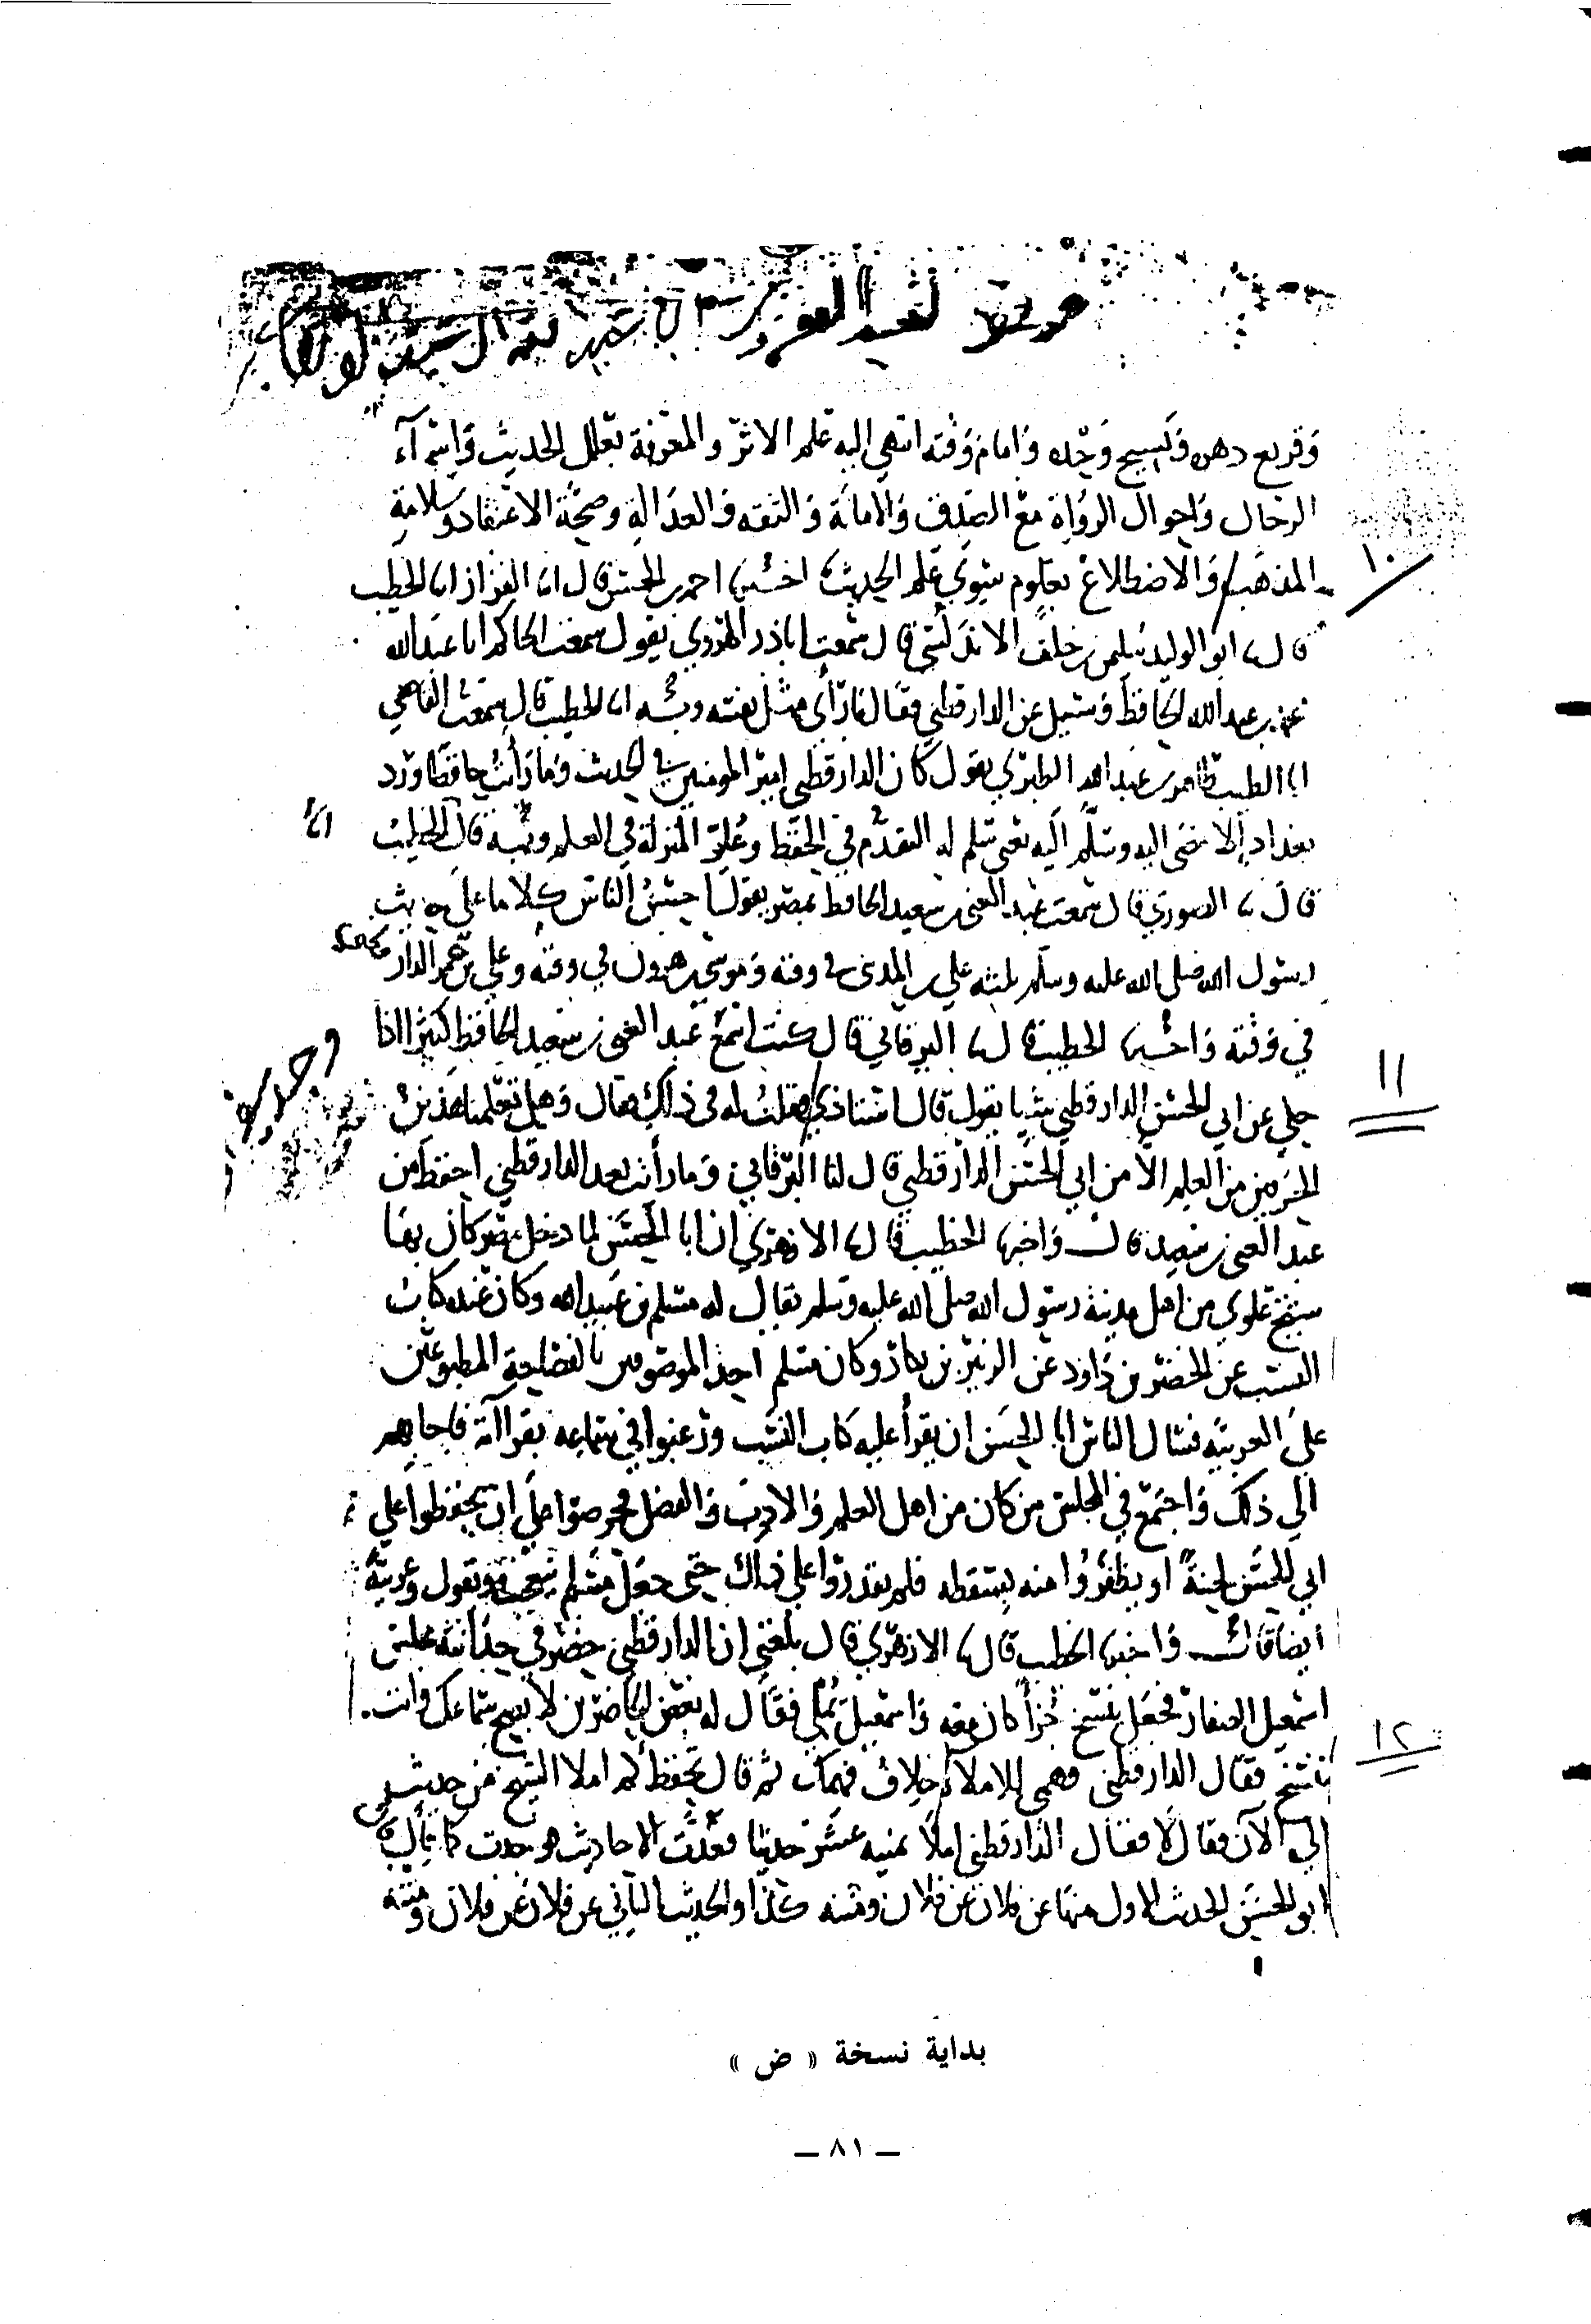 وقريع دهره ونسيج وحده وامام وقته انتهى اليه علم الاثر والمعرفة بعلل الحديث واسمآء
الرجال واحوال الرواة مع الصدق والامانة والثقه والعدالة وصحة الاعتقاد وسلامة
١٠
المذهب والاضطلاع بعلوم سوى علم الحديث احمد بن الحسن قال انا القزاز انا الخطيب
قال نا ابو الوليد سليمن بن خلف الاندلسي قال سمعت اباذر الهروي يقول سمعت الحاكم ابا عبدالله
بن عبد الله الحافظ وسئيل عن الدارقطني فقال ما رأى مثل نفسه وبه انا الخطيب قال سمعت القاضي
ابا الطيب طاهر بن عبد الله الطبري يقول كان الدارقطني امير المومنين في الحديث وما رأيت حافظا ورد
بغداد إلا مضى اليه وسلم اليه يعني سلم له التقدم في الحفظ وعلو المنزلة في العلم وبه قال الخطيب
قال نا الصوري قال سمعت عبد الغني بن سعيد الحافظ بمصر يقول احسن الناس كلاما على حديث
رسول الله صلى الله عليه وسلم ثلثه علي بن المديني في وقته وموسى بن هرون في وقته وعلي بن عمر الدار
في وقته واخبرنا الخطيب قال نا البرقاني قال كنت اسمع عبد الغني بن سعيد الحافظ كثيرا اذا
١١
حكي عن ابي الحسن الدارقطني شيا يقول قال استاذي فقلت له في ذلك فقال وهل تعلمنا هذين
الحرفين من العلم الا من ابي الحسن الدارقطني قال لنا البرقاني وما رأيت بعد الدارقطني احفظ من
عبد الغني بن سعيد قال واخبرنا الخطيب قال نا الازهري ان ابا الحسن لما دخل مصر كان بها
شيخ علوي من اهل مدينة رسول الله صلى الله عليه وسلم يقال له مسلم بن عبيد الله وكان عنده كتاب
النسب عن الخضر بن داود عن الزبير بن بكار وكان مسلم احد الموصوفين بالفصاحة المطبوعين
على العربيه فسال الناس ابا الحسن ان يقرأ عليه كتاب النسب ورغبوا في سماعه بقراآته فاجابهم
الى ذلك واجتمع في المجلس من كان من اهل العلم والادب والفضل فحرصوا على ان يحفظوا على
ابي الحسن لحنة او يظفروا منه بسقطه فلم يقدروا على ذلك حتى جعل مسلم يعجب ويقول وعربية
ايضا قال واخبرنا الخطيب قال نا الازهري قال بلغني ان الدارقطني حضر في حداثته مجلس
اسمعيل الصفار فجعل ينسخ جزأ كان معه واسمعيل يملي فقال له بعض الحاضرين لا يصح سماعك وانت
١٢
تنسخ فقال الدارقطني فهمي للاملاء خلاف فهمك ثم قال تحفظ كم املا الشيخ من حديث
الى الآن فقال لا فقال الدارقطني املا ثمنيه عشر حديثا فعدت الاحاديث فوجدت كما قال
ابو الحسن الحديث الاول منها عن فلان عن فلان ومتنه كذا والحديث الثاني عن فلان عن فلان ومتنه
بداية نسخة « ض »
– ٨١ –